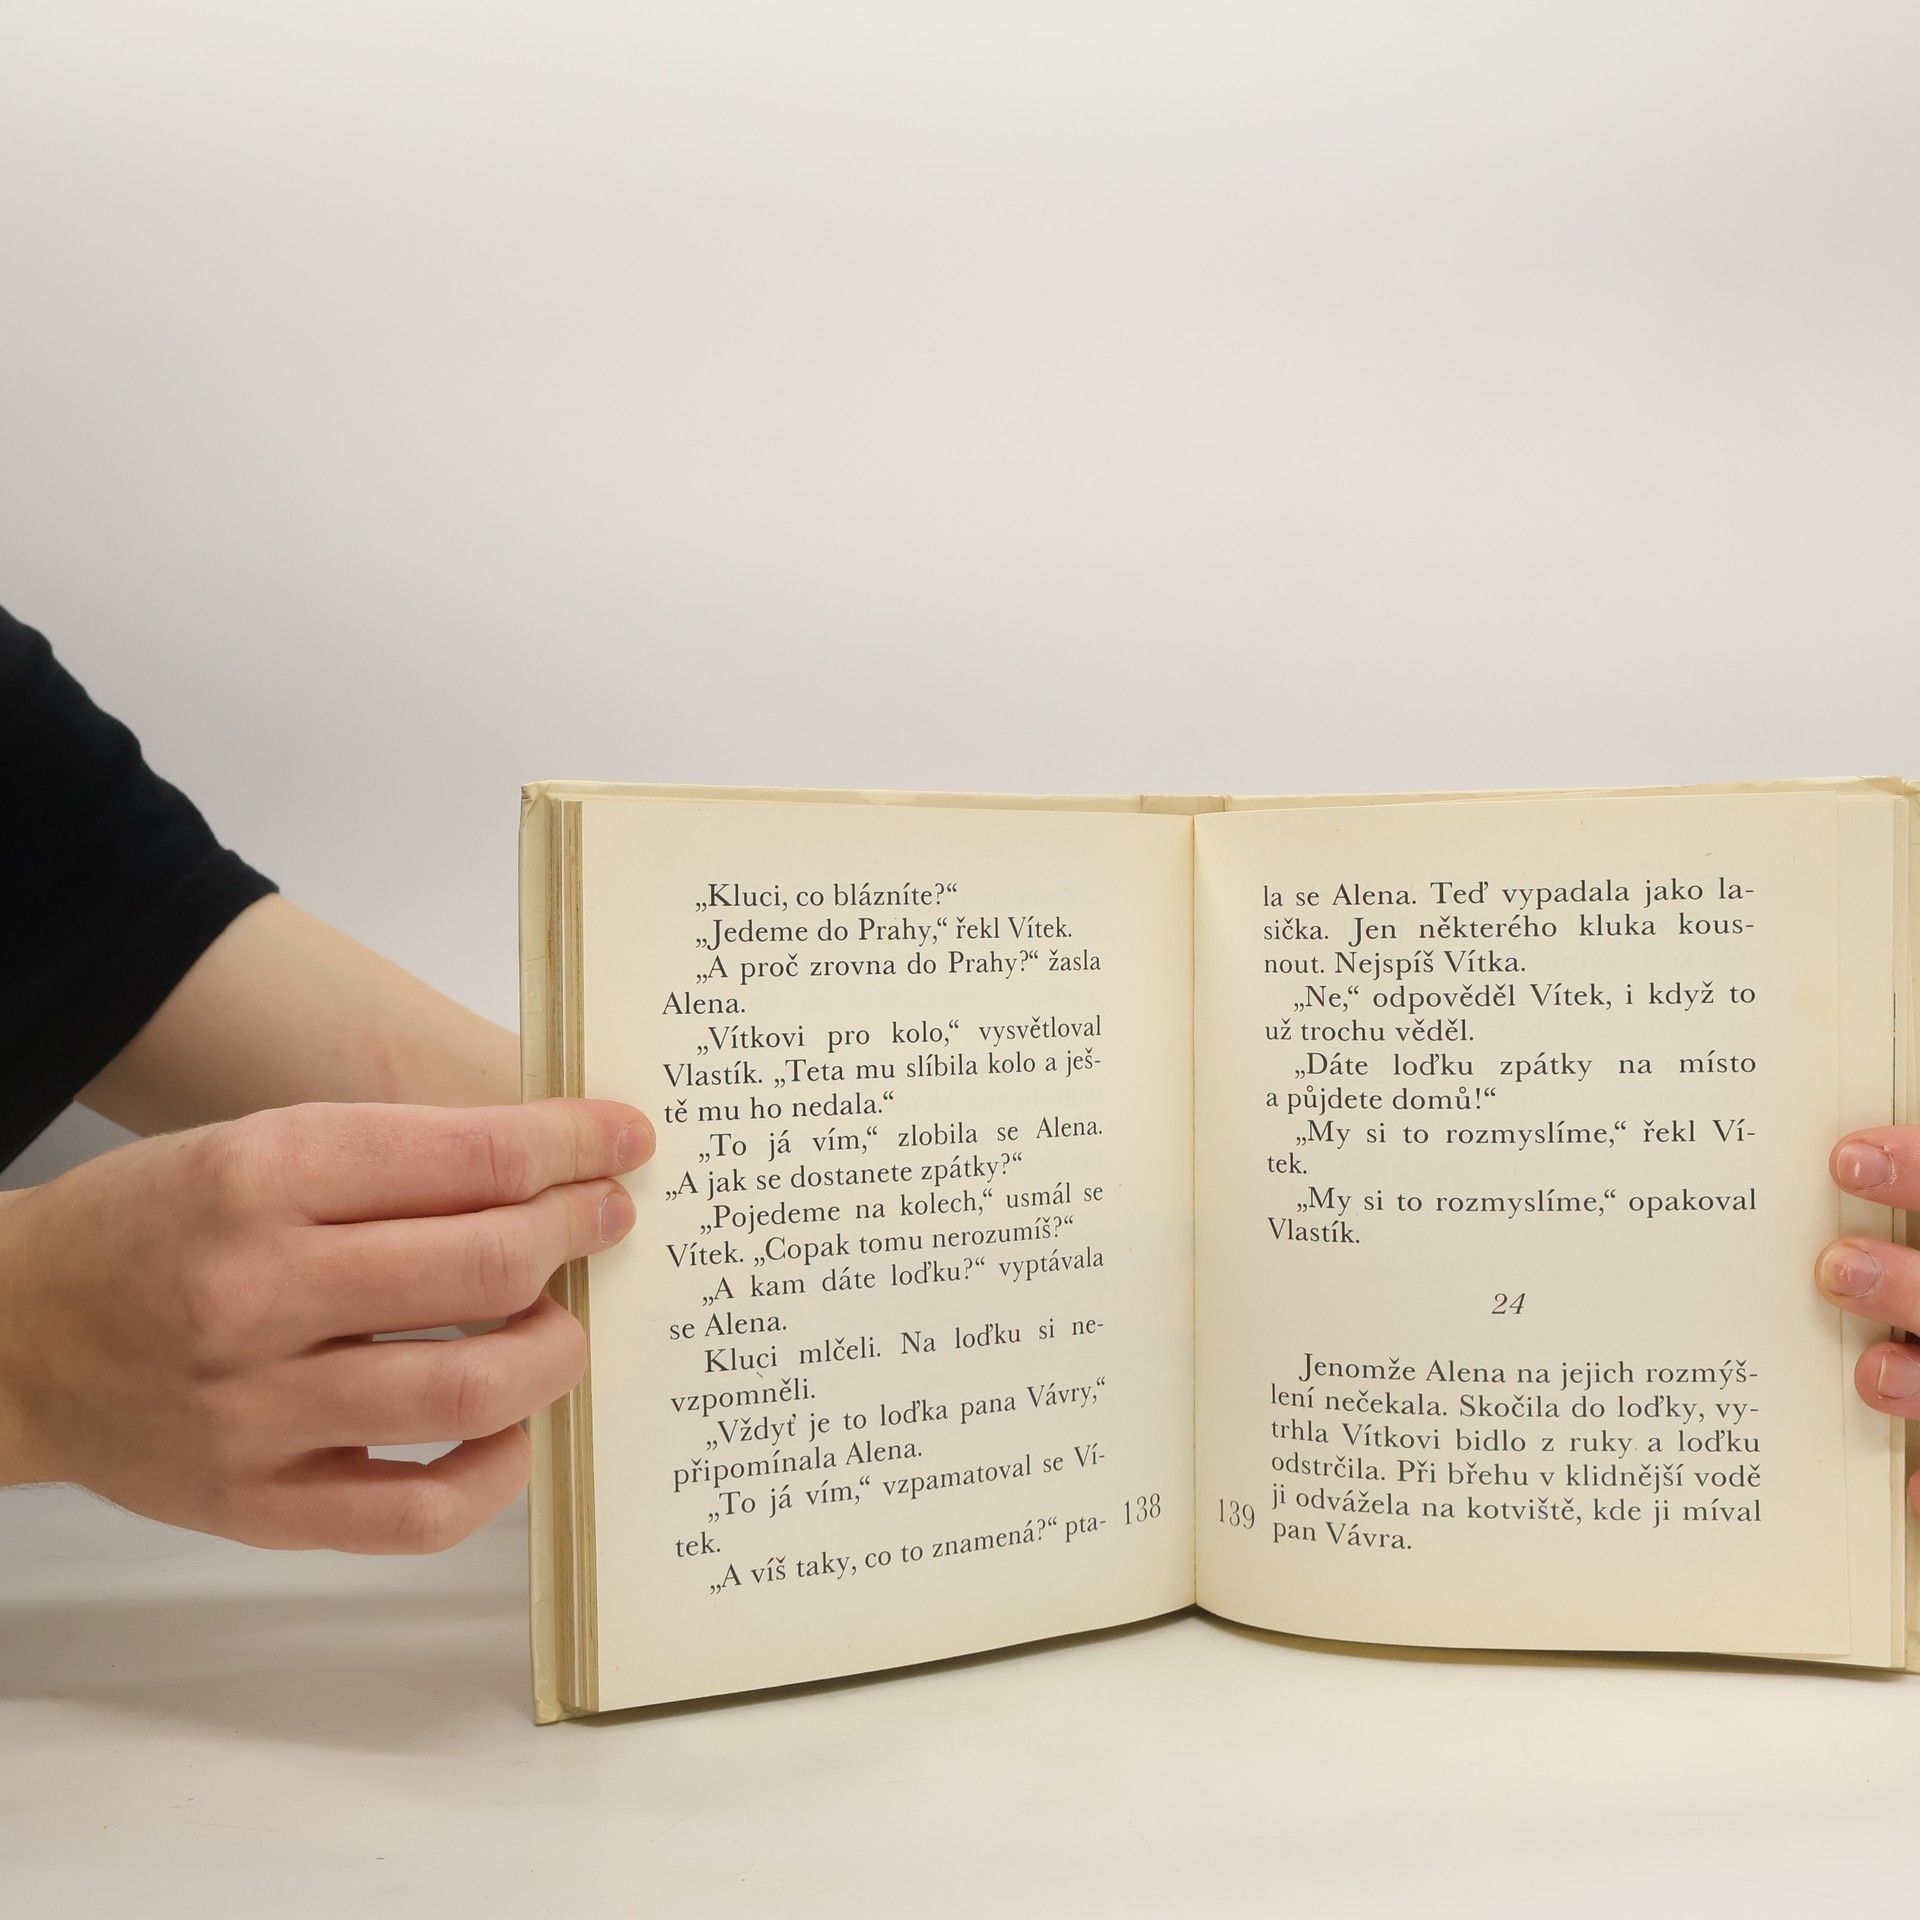 „Kluci, co blázníte?“
„Jedeme do Prahy,“ řekl Vítek.
„A proč zrovna do Prahy?“ žasla
Alena.
„Vítkovi pro kolo,“ vysvětloval
Vlastík. „Teta mu slíbila kolo a ješ-
tě mu ho nedala.“
„To já vím,“ zlobila se Alena.
„A jak se dostanete zpátky?“
„Pojedeme na kolech,“ usmál se
Vítek. „Copak tomu nerozumíš?“
„A kam dáte loďku?“ vyptávala
se Alena.
Kluci mlčeli. Na loďku si ne-
vzpomněli.
„Vždyť je to loďka pana Vávry,“
připomínala Alena.
„To já vím,“ vzpamatoval se Ví-
tek.
„A víš taky, co to znamená?“ pta-
138
la se Alena. Teď vypadala jako la-
sička. Jen některého kluka kous-
nout. Nejspíš Vítka.
„Ne,“ odpověděl Vítek, i když to
už trochu věděl.
„Dáte loďku zpátky na místo
a půjdete domů!“
„My si to rozmyslíme,“ řekl Ví-
tek.
„My si to rozmyslíme,“ opakoval
Vlastík.
24
Jenomže Alena na jejich rozmýš-
lení nečekala. Skočila do loďky, vy-
trhla Vítkovi bidlo z ruky a loďku
odstrčila. Při břehu v klidnější vodě
ji odvážela na kotviště, kde ji míval
pan Vávra.
139